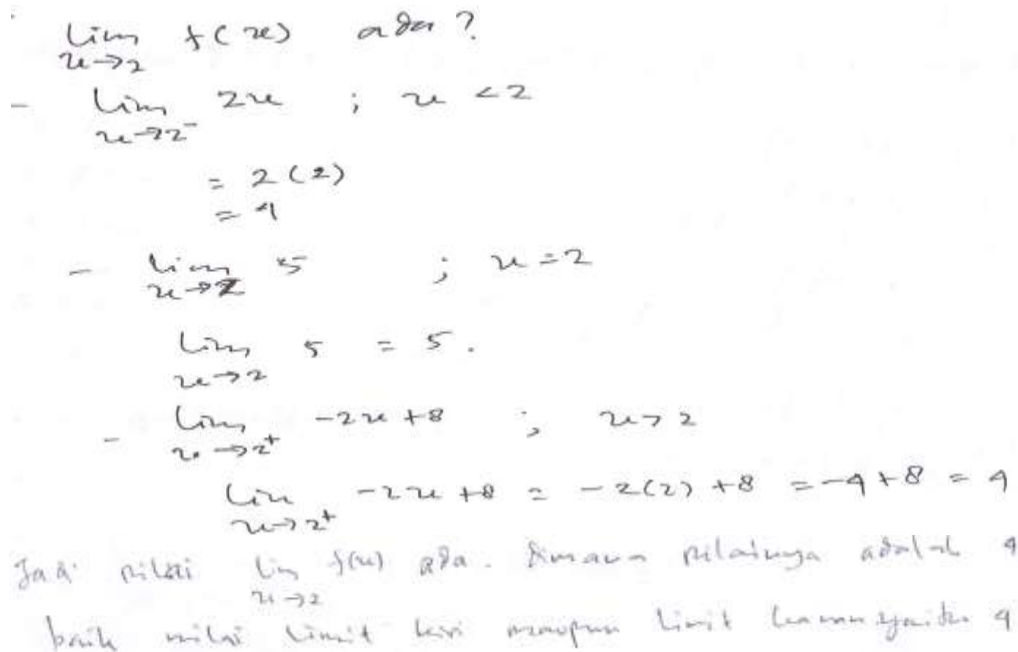 lim f(x) ada ?
x→2
- lim 2x ; x < 2
x→2⁻
= 2(2)
= 4
- lim 5 ; x = 2
x→2
lim 5 = 5.
x→2
- lim -2x+8 ; x > 2
x→2⁺
lim -2x+8 = -2(2)+8 = -4+8 = 4
x→2⁺
Jadi nilai lim f(x) ada. dimana nilainya adalah 4
x→2
baik nilai limit kiri maupun limit kanan yaitu 4